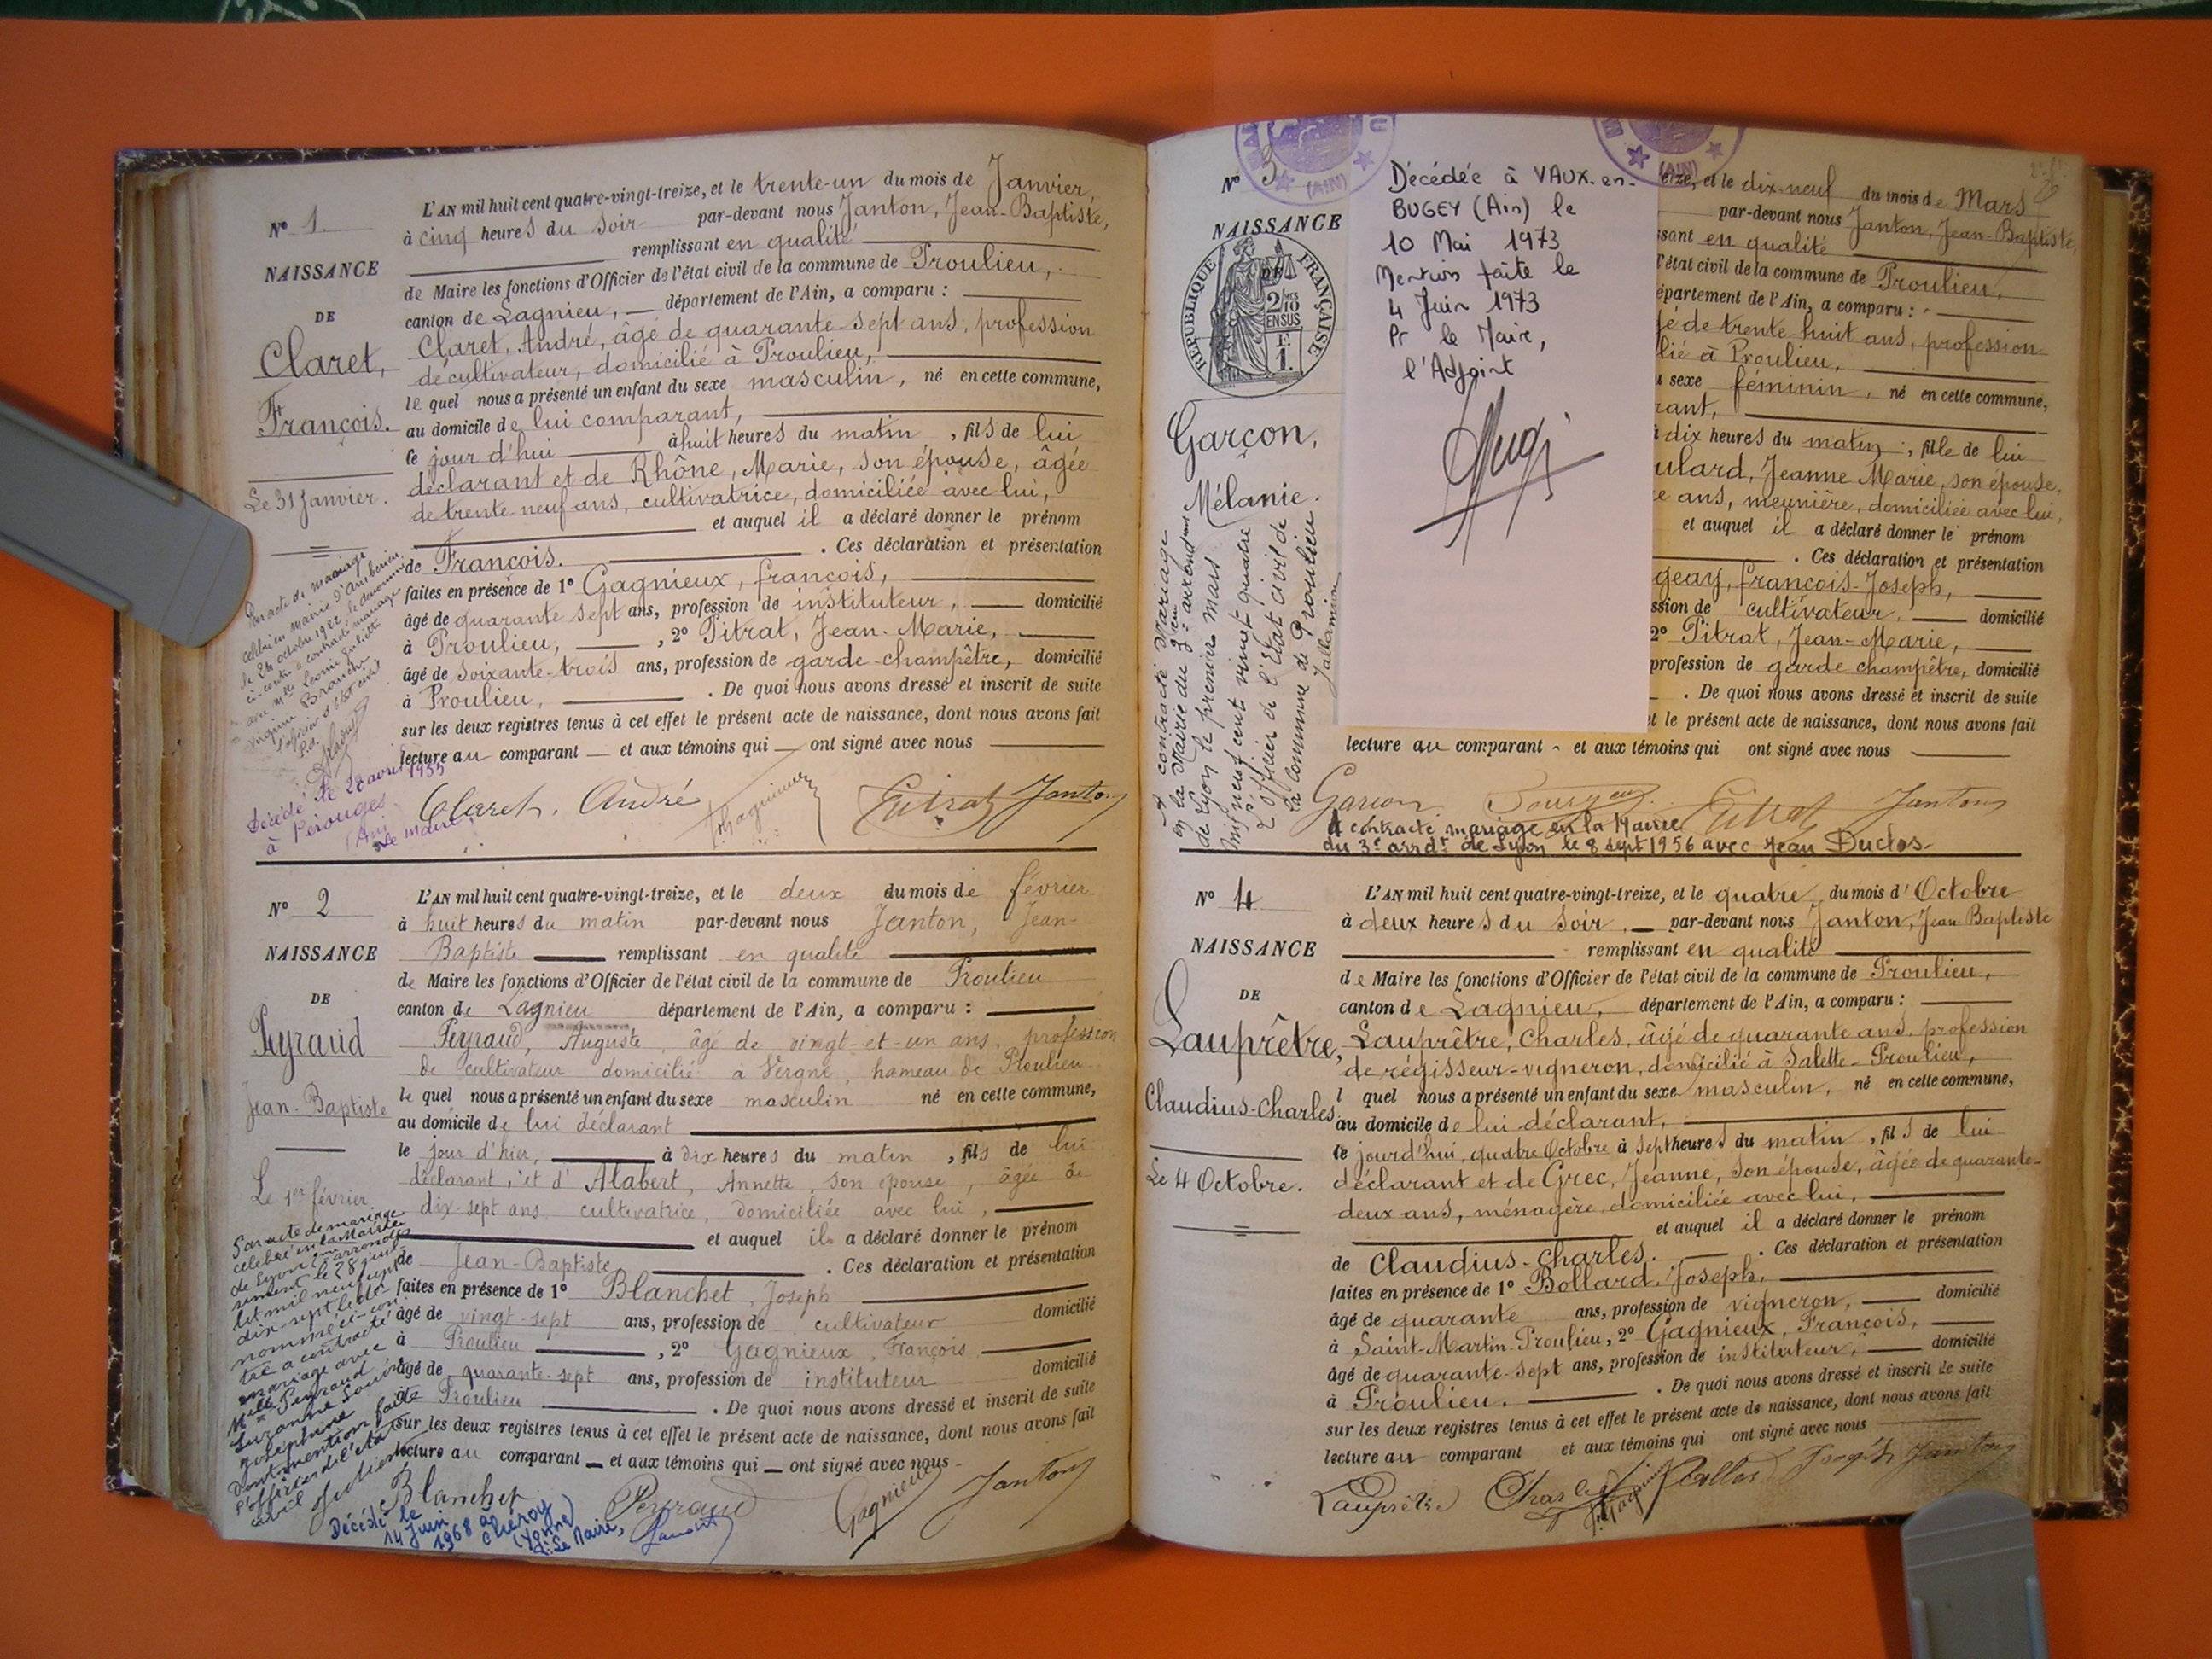 N° 1.
NAISSANCE
DE
Claret,
François.
Le 31 Janvier.
L'AN mil huit cent quatre-vingt-treize, et le trente-un du mois de Janvier,
à cinq heures du soir par-devant nous Janton, Jean-Baptiste,
remplissant en qualité
de Maire les fonctions d'Officier de l'état civil de la commune de Proulieu,
canton de Lagnieu, département de l'Ain, a comparu :
Claret, André, âgé de quarante-sept ans, profession
de cultivateur, domicilié à Proulieu,
lequel nous a présenté un enfant du sexe masculin, né en cette commune,
au domicile de lui comparant,
le jour d'hui à huit heures du matin, fils de lui
déclarant et de Rhône, Marie, son épouse, âgée
de trente neuf ans, cultivatrice, domiciliée avec lui,
et auquel il a déclaré donner le prénom
de François. . Ces déclaration et présentation
faites en présence de 1° Gagnieux, françois,
âgé de quarante sept ans, profession de instituteur, domicilié
à Proulieu, , 2° Pitrat, Jean-Marie,
âgé de soixante-trois ans, profession de garde-champêtre, domicilié
à Proulieu, . De quoi nous avons dressé et inscrit de suite
sur les deux registres tenus à cet effet le présent acte de naissance, dont nous avons fait
lecture au comparant et aux témoins qui ont signé avec nous
Par acte de mariage
célébré en mairie d'Ambérieu
le 24 octobre 1922, le dénommé
ci-contre a contracté mariage
avec Mlle Léonie Juliette
Virginie
l'officier d'état civil
Décédé le 28 avril 1955
à Pérouges
(Ain)
Le maire,
Claret, André Gagnieux Pitrat Janton
N° 2
NAISSANCE
DE
Peyraud
Jean-Baptiste
Le 1er février
L'AN mil huit cent quatre-vingt-treize, et le deux du mois de février
à huit heures du matin par-devant nous Janton, Jean-
Baptiste remplissant en qualité
de Maire les fonctions d'Officier de l'état civil de la commune de Proulieu
canton de Lagnieu département de l'Ain, a comparu :
Peyraud, Auguste, âgé de vingt-et-un ans, profession
de cultivateur domicilié à Vergne, hameau de Proulieu
lequel nous a présenté un enfant du sexe masculin né en cette commune,
au domicile de lui déclarant
le jour d'hier, à dix heures du matin, fils de lui
déclarant, et d'Alabert, Annette, son épouse, âgée de
dix-sept ans, cultivatrice, domiciliée avec lui,
et auquel il a déclaré donner le prénom
de Jean-Baptiste . Ces déclaration et présentation
faites en présence de 1° Blanchet, Joseph
âgé de vingt-sept ans, profession de cultivateur domicilié
à Proulieu , 2° Gagnieux, François
âgé de quarante-sept ans, profession de instituteur domicilié
à Proulieu . De quoi nous avons dressé et inscrit de suite
sur les deux registres tenus à cet effet le présent acte de naissance, dont nous avons fait
lecture au comparant et aux témoins qui ont signé avec nous
Par acte de mariage
célébré en la Mairie
de Lyon 2em arrondis
sement le 28 juil
let mil neuf cent
dix-sept le dé-
nommé ci-con
tre a contracté
mariage avec
Mlle Peyraud
Suzanne Louise
Joséphine
Dont mention faite
l'officier de l'état
civil
Blanchet Peyraud Gagnieux Janton
Décédé le
14 Juin
1968 à
Chéroy
(Yonne)
Le Maire,
N° 3
(AIN)
(AIN)
NAISSANCE
DE
REPUBLIQUE FRANÇAISE
2/10 EN SUS
1.
Garçon,
Mélanie.
A contracté Mariage
en la Mairie du 3em arrond
de Lyon le premier Mars
mil neuf cent vingt quatre
L'officier de l'Etat civil de
la commune de Proulieu
Décédée à VAUX-en-
BUGEY (Ain) le
10 Mai 1973
Mention faite le
4 Juin 1973
Pr le Maire,
l'Adjoint
eize, et le dix-neuf du mois de Mars
par-devant nous Janton, Jean-Baptiste,
ssant en qualité
l'état civil de la commune de Proulieu,
épartement de l'Ain, a comparu :
gé de trente-huit ans, profession
lié à Proulieu,
u sexe féminin, né en cette commune,
rant,
à dix heures du matin, fille de lui
ulard, Jeanne Marie, son épouse,
e ans, meunière, domiciliée avec lui,
et auquel il a déclaré donner le prénom
. Ces déclaration et présentation
geay, françois-Joseph,
ssion de cultivateur, domicilié
2° Pitrat, Jean-Marie,
profession de garde champêtre, domicilié
. De quoi nous avons dressé et inscrit de suite
et le présent acte de naissance, dont nous avons fait
lecture au comparant et aux témoins qui ont signé avec nous
Garcon Pitrat Janton
A contracté mariage en la Mairie
du 3e arrdt de Lyon le 8 sept 1956 avec Jean Duclos
N° 4
NAISSANCE
DE
Lauprêtre,
Claudius-Charles
Le 4 Octobre.
L'AN mil huit cent quatre-vingt-treize, et le quatre du mois d'Octobre
à deux heures du soir, par-devant nous Janton, Jean Baptiste
remplissant en qualité
de Maire les fonctions d'Officier de l'état civil de la commune de Proulieu,
canton de Lagnieu, département de l'Ain, a comparu :
Lauprêtre, Charles, âgé de quarante ans, profession
de régisseur-vigneron, domicilié à Salette-Proulieu,
l quel nous a présenté un enfant du sexe masculin, né en cette commune,
au domicile de lui déclarant,
le jourd'hui, quatre Octobre à sept heures du matin, fils de lui
déclarant et de Grec, Jeanne, son épouse, âgée de quarante-
deux ans, ménagère, domiciliée avec lui,
et auquel il a déclaré donner le prénom
de Claudius-Charles. . Ces déclaration et présentation
faites en présence de 1° Bollard, Joseph,
âgé de quarante ans, profession de vigneron, domicilié
à Saint-Martin-Proulieu, 2° Gagnieux, François,
âgé de quarante-sept ans, profession de instituteur, domicilié
à Proulieu. . De quoi nous avons dressé et inscrit de suite
sur les deux registres tenus à cet effet le présent acte de naissance, dont nous avons fait
lecture au comparant et aux témoins qui ont signé avec nous
Lauprêtre Charles Gagnieux Bollard Joseph Janton